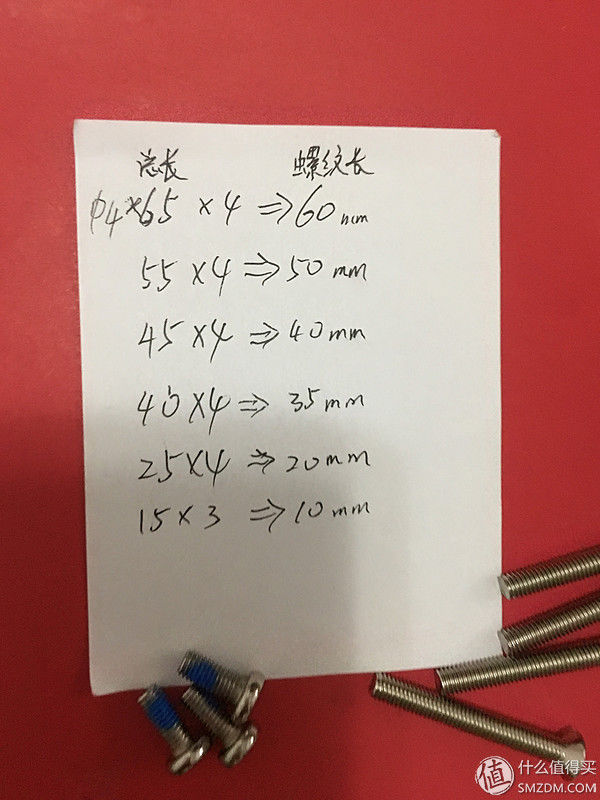 总长 螺纹长
φ4×65 ×4 ⇒ 60mm
55 ×4 ⇒ 50mm
45 ×4 ⇒ 40mm
40 ×4 ⇒ 35mm
25×4 ⇒ 20mm
15×3 ⇒ 10mm
值 什么值得买
SMZDM.COM